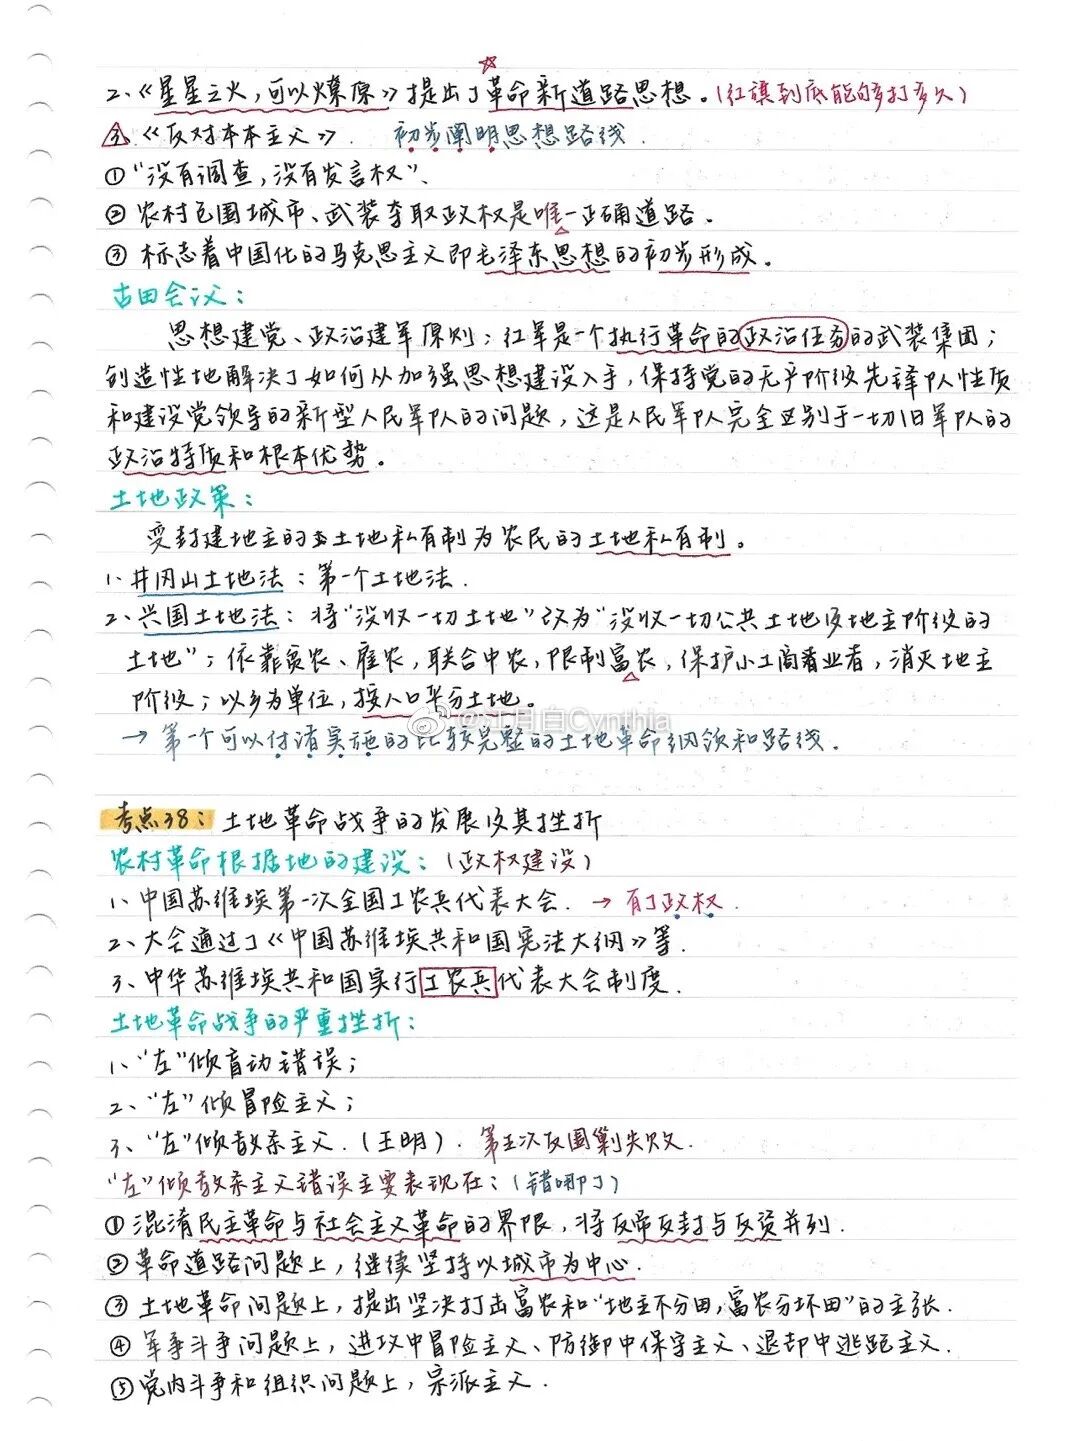 2、《星星之火，可以燎原》提出了革命新道路思想。(红旗到底能够打多久)
3、《反对本本主义》. 初步阐明思想路线.
①"没有调查，没有发言权"、
②农村包围城市、武装夺取政权是唯一正确道路.
③标志着中国化的马克思主义即毛泽东思想的初步形成。
古田会议：
思想建党、政治建军原则；红军是一个执行革命的政治任务的武装集团；
创造性地解决了如何从加强思想建设入手，保持党的无产阶级先锋队性质
和建设党领导的新型人民军队的问题，这是人民军队完全区别于一切旧军队的
政治特质和根本优势。
土地政策：
变封建地主的土地私有制为农民的土地私有制。
1、井冈山土地法：第一个土地法.
2、兴国土地法：将"没收一切土地"改为"没收一切公共土地及地主阶级的
土地"；依靠贫农、雇农，联合中农，限制富农，保护小工商业者，消灭地主
阶级；以乡为单位，按人口平分土地。
@江月白Cynthia
→第一个可以付诸实施的比较完整的土地革命纲领和路线.
考点38：土地革命战争的发展及其挫折
农村革命根据地的建设：(政权建设)
1、中国苏维埃第一次全国工农兵代表大会. →有了政权.
2、大会通过了《中国苏维埃共和国宪法大纲》等.
3、中华苏维埃共和国实行工农兵代表大会制度.
土地革命战争的严重挫折：
1、"左"倾盲动错误；
2、"左"倾冒险主义；
3、"左"倾教条主义.(王明). 第五次反围剿失败.
"左"倾教条主义错误主要表现在：(错哪了)
①混淆民主革命与社会主义革命的界限，将反帝反封与反资并列.
②革命道路问题上，继续坚持以城市为中心.
③土地革命问题上，提出坚决打击富农和"地主不分田，富农分坏田"的主张.
④军事斗争问题上，进攻中冒险主义、防御中保守主义、退却中逃跑主义.
⑤党内斗争和组织问题上，宗派主义.